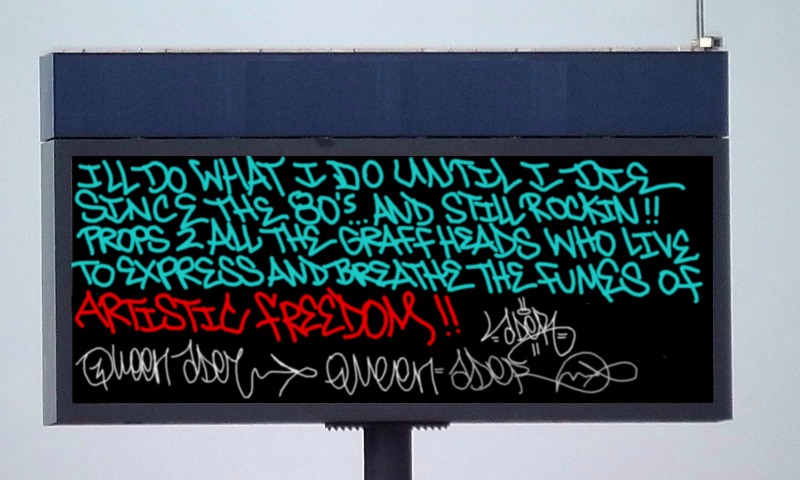 ILL DO WHAT I DO UNTIL I DIE
SINCE THE 80's... AND STILL ROCKIN!!
PROPS 2 ALL THE GRAFFHEADS WHO LIVE
TO EXPRESS AND BREATHE THE FUMES OF
ARTISTIC FREEDOM!!
QUEEN JDER QUEEN JDER